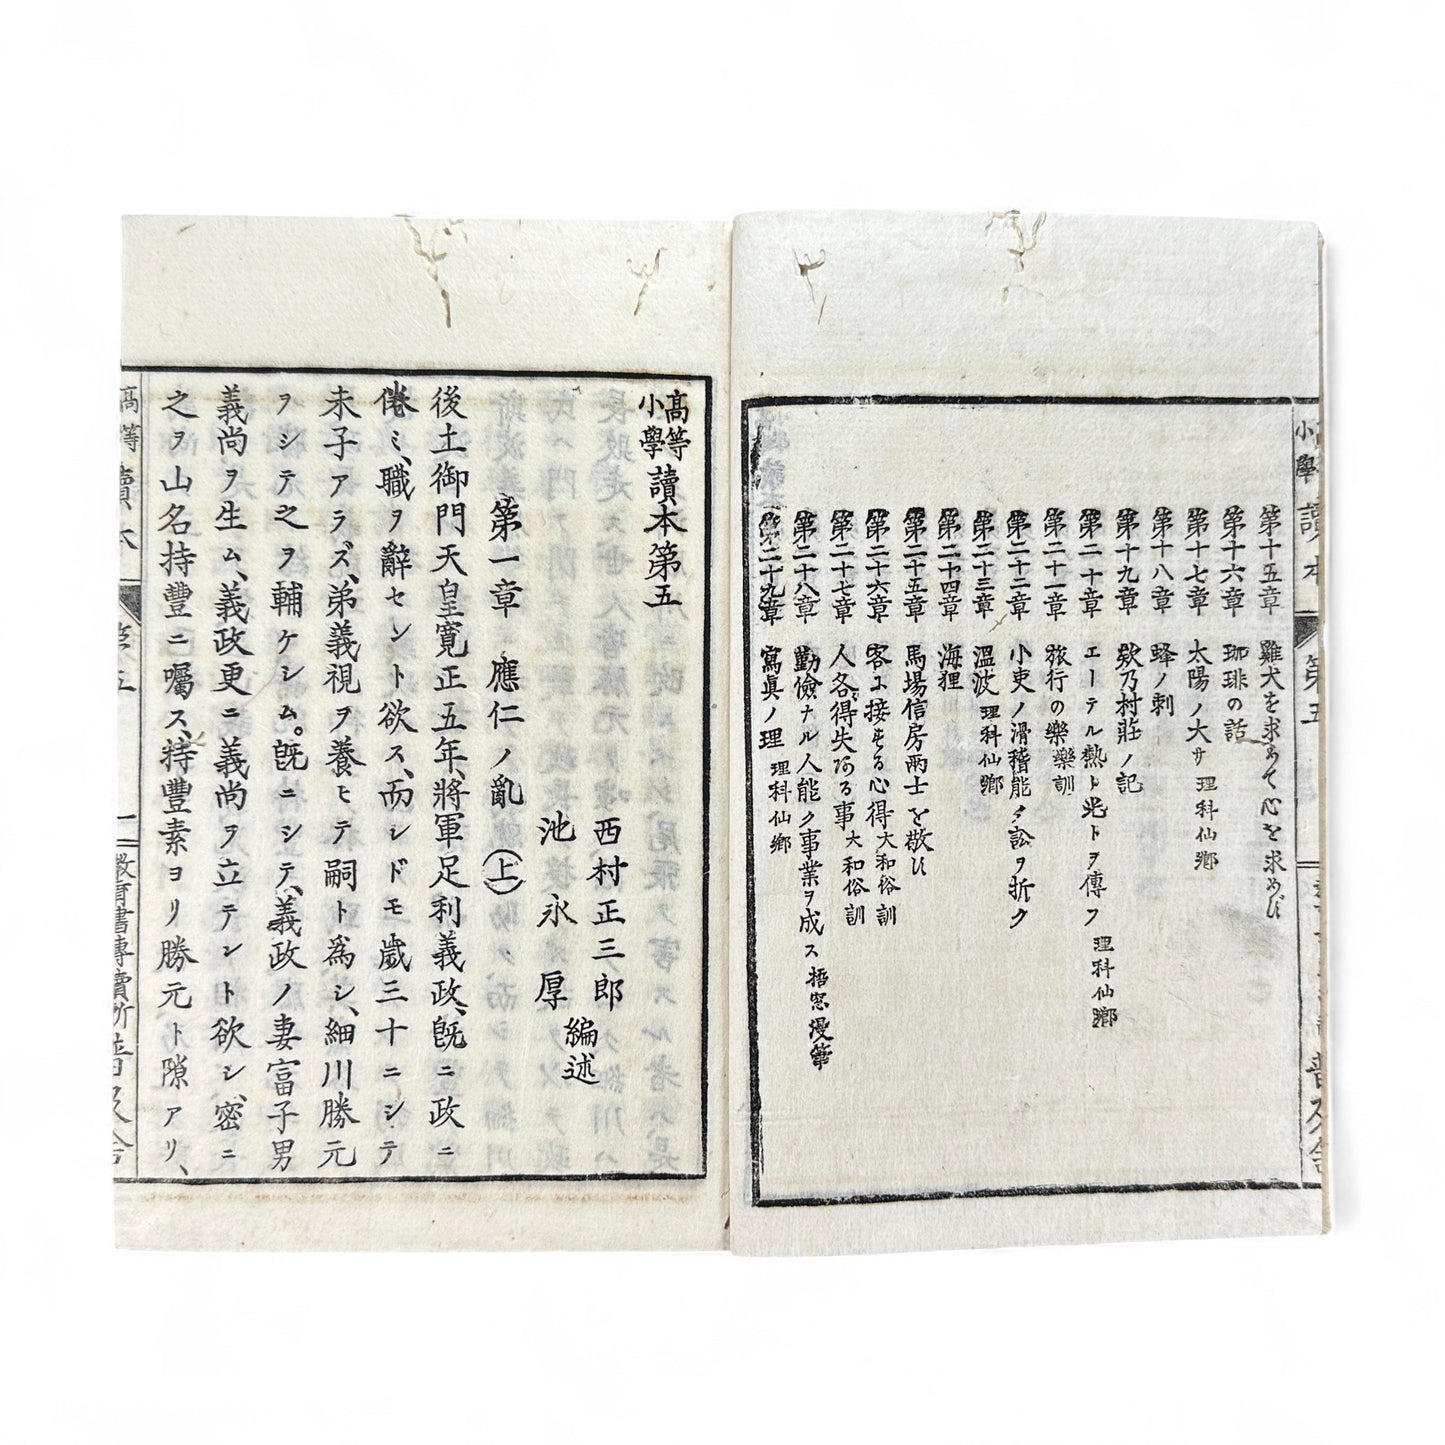 第十五章 雞犬を求めて心を求めず
第十六章 珈琲の話
第十七章 太陽ノ大サ 理科仙鄉
第十八章 蜂ノ刺
第十九章 欸乃村莊ノ記
第二十章 エーテル熱ト光トヲ傳フ 理科仙鄉
第二十一章 旅行の樂 樂訓
第二十二章 小吏ノ滑稽能ク訟ヲ折ク
第二十三章 溫波 理科仙鄉
第二十四章 海狸
第二十五章 馬場信房兩士を敬ひ
第二十六章 客に接する心得 大和俗訓
第二十七章 人各得失ある事 大和俗訓
第二十八章 勤儉ナル人能ク事業ヲ成ス 梧窓漫筆
第二十九章 寫眞ノ理 理科仙鄉
高等小學讀本第五
西村正三郎
池永厚 編述
第一章 應仁ノ亂(上)
後土御門天皇寬正五年、將軍足利義政、旣ニ政ニ
倦ミ、職ヲ辭セント欲ス、而レドモ歲三十ニシテ
未子アラズ、弟義視ヲ養ヒテ嗣ト爲シ、細川勝元
ヲシテ之ヲ輔ケシム。旣ニシテ、義政ノ妻富子男
義尚ヲ生ム、義政更ニ義尚ヲ立テント欲シ、密ニ
之ヲ山名持豐ニ囑ス、持豐素ヨリ勝元ト隙アリ、
高等讀本 第五 一 教育書專賣所普及舍